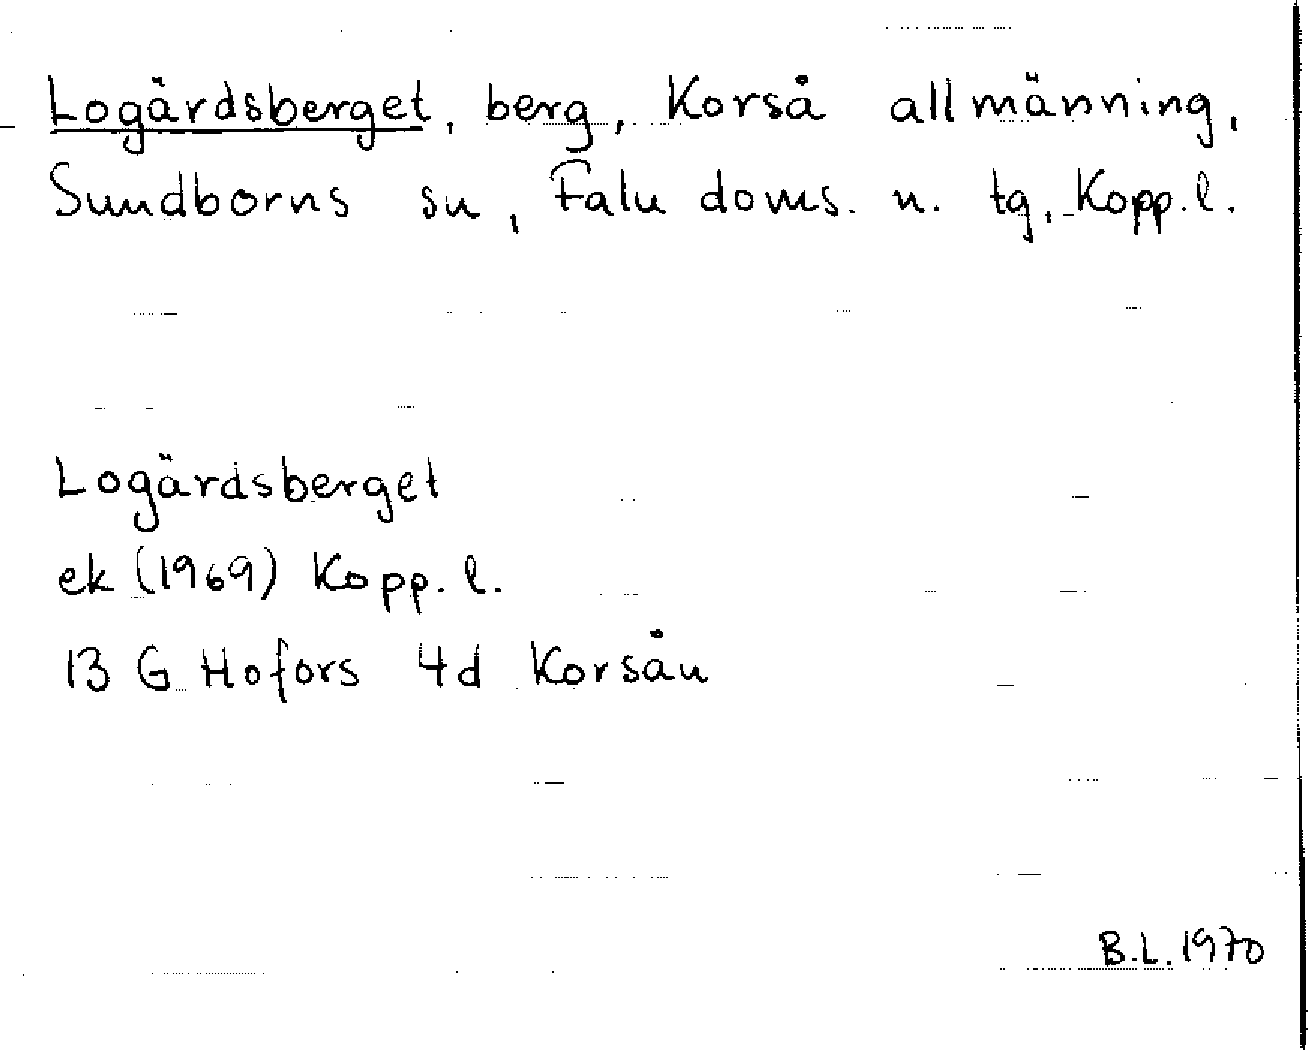 Logärdsberget, berg, Korså allmänning,
Sundborns sn, Falu doms. n. tg, Kopp.l.
Logärdsberget
ek (1969) Kopp.l.
13 G Hofors 4d Korsån
B.L. 1970